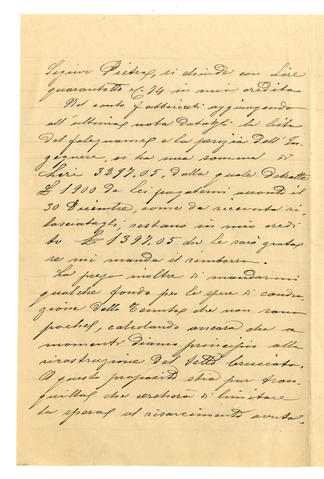 Signor Pietro, si chiude con Lire
quarantotto e C. 74 in mio credito
Nel conto fabbricati aggiungendo
all'ultima nota datagli la lista
del falegname e la perizia dell'In-
gegnere, si ha una somma di
Lire 3297.05, dalla quale detratte
£ 1900 da lei pagatemi secondo il
30 Dicembre, come da ricevuta ri-
lasciatagli, restano in mio credi
to £ 1397.05 che le sarò grato
se mi manda il rimborso.
La prego inoltre di mandarmi
qualche fondo per le spese di condu-
zione della Tenuta che non sono
poche, calcolando ancora che a
momenti diamo principio alla
ricostruzione del tetto bruciato.
A questo proposito stia pur tran-
quillo che cercherò di limitare
la spesa al risarcimento avuto.